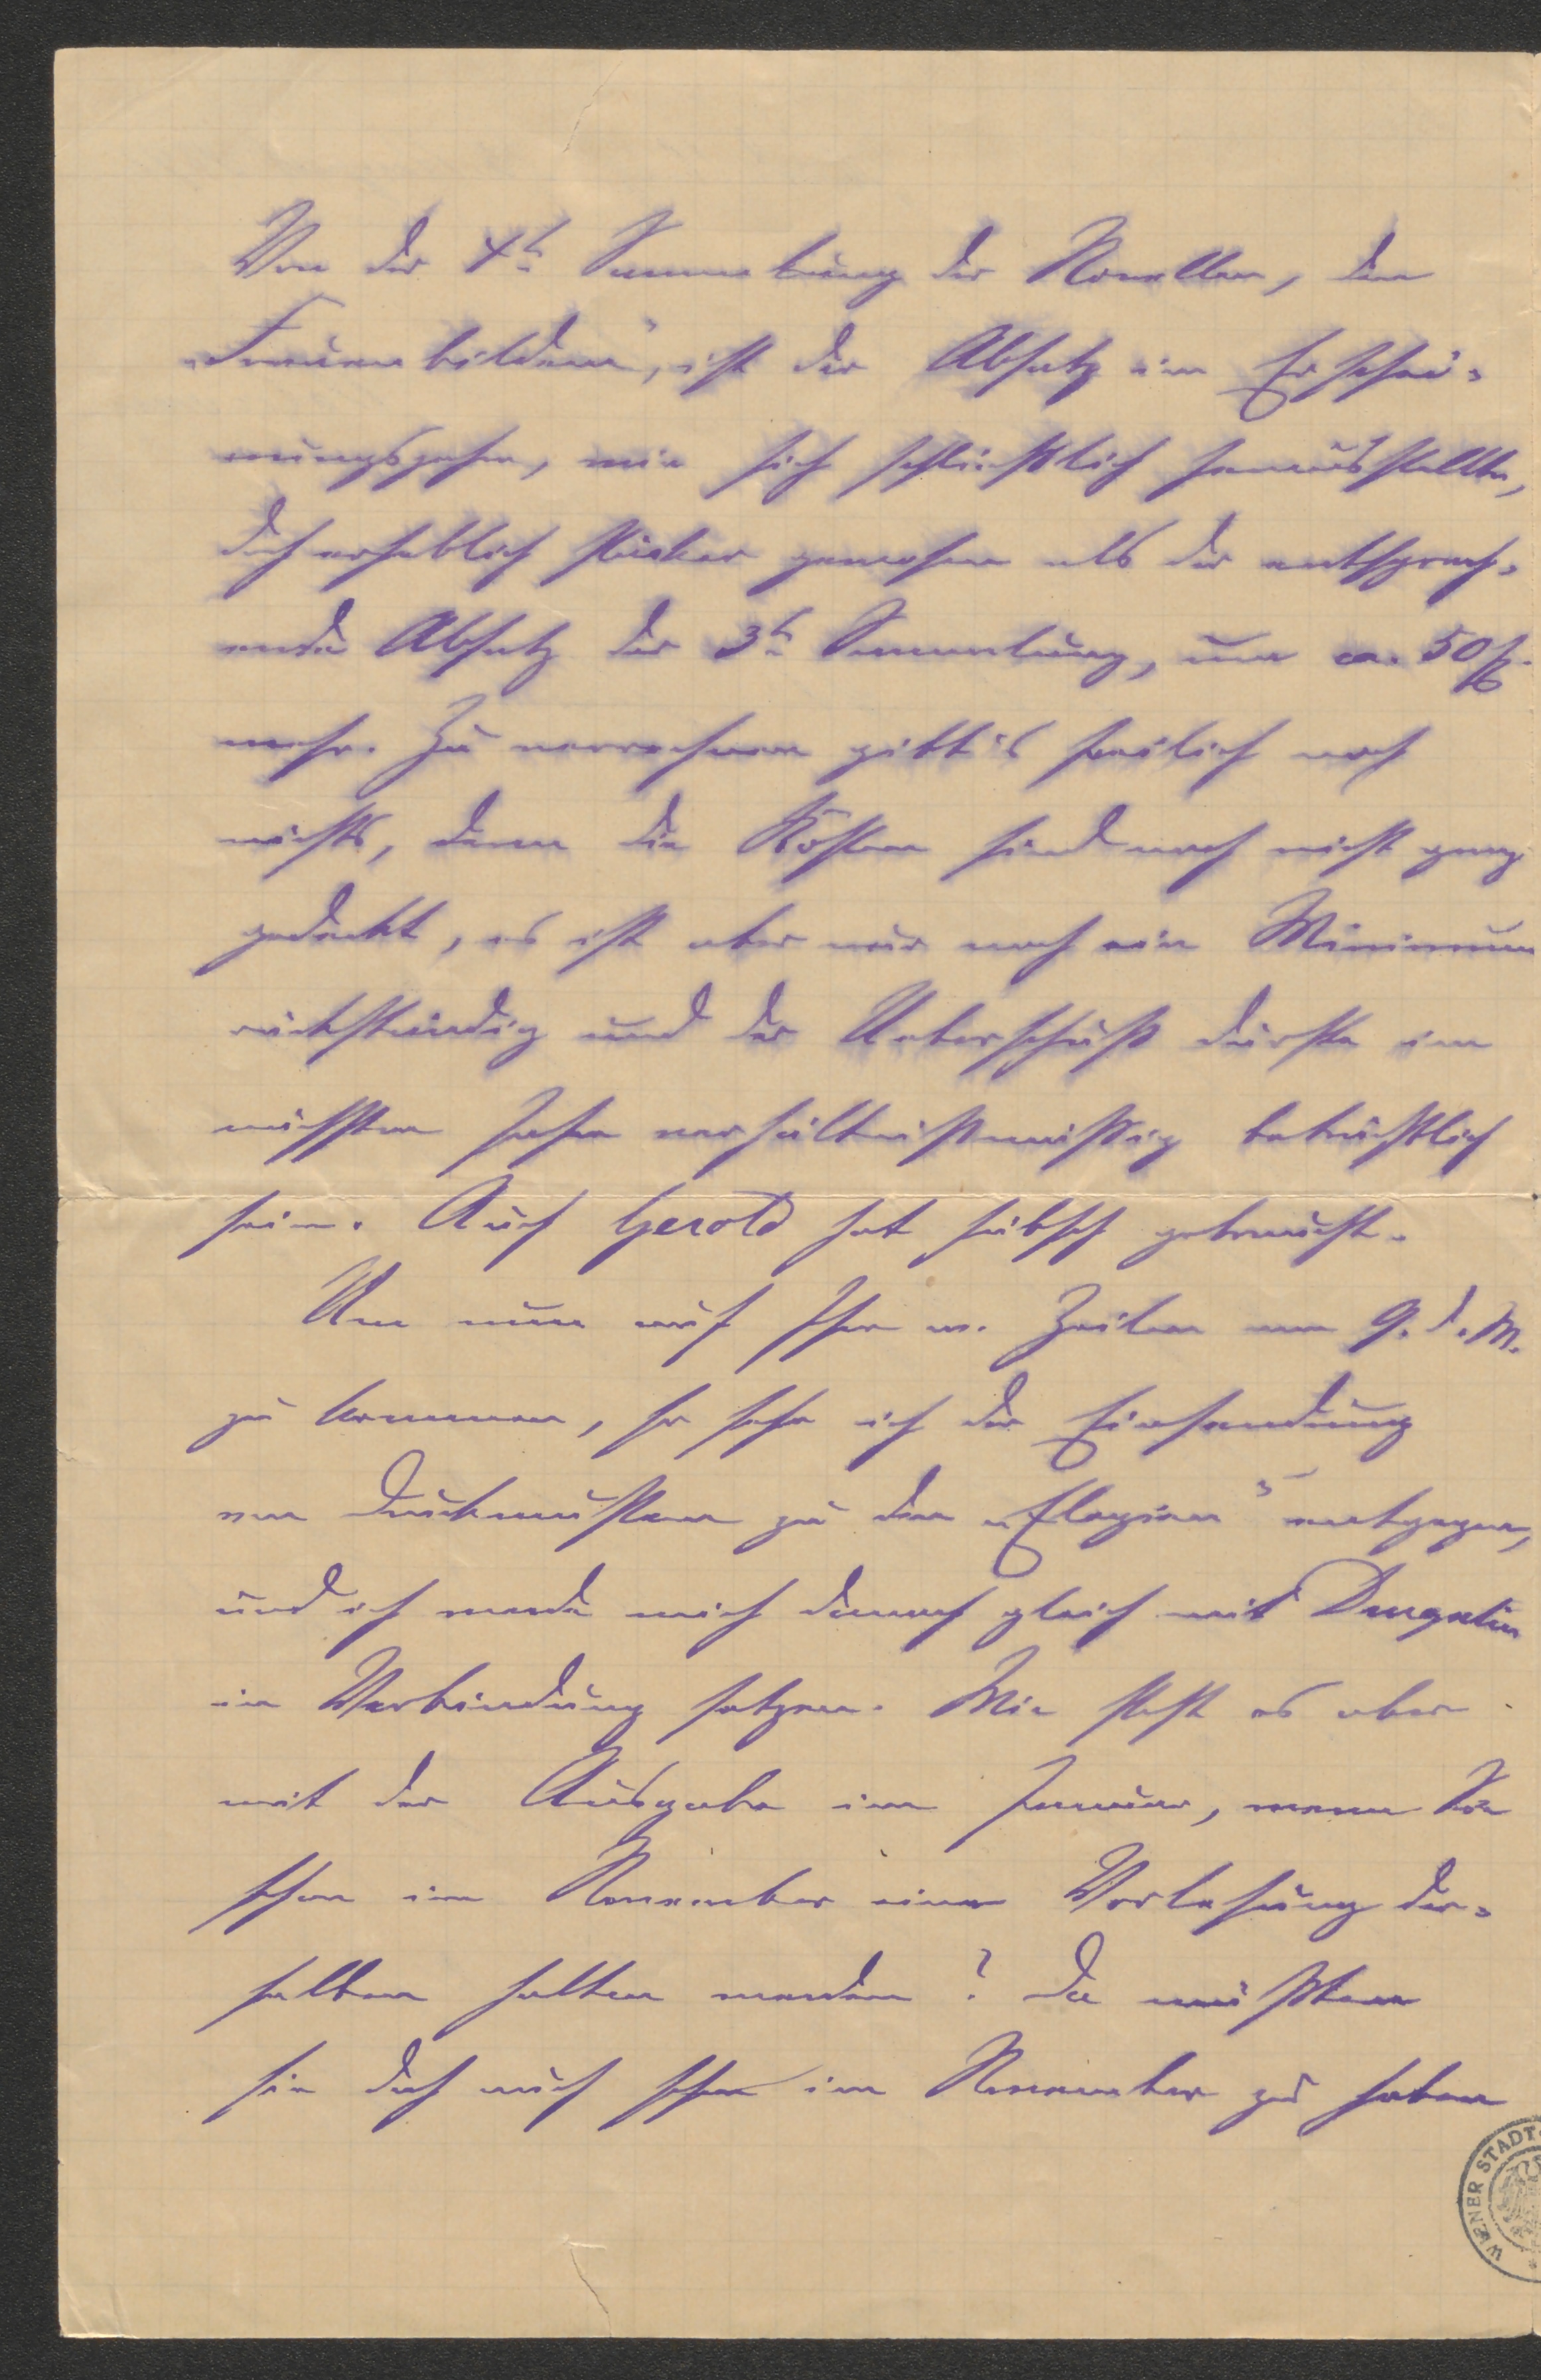 Von der 4t Sammlung der Novellen, den
„Frauenbildern", ist der Absatz im Erschei-
nungsjahre, wie sich schließlich herausstellte,
doch erheblich stärker gewesen als der entsprech-
ende Absatz der 3t Sammlung, um ca. 50%
mehr. Zu verrechnen gibt's freilich noch
nichts, denn die Kosten sind noch nicht ganz
gedeckt, es ist aber nur noch ein Minimum
rückständig und der Ueberschuß dürfte im
nächsten Jahre verhältnißmäßig beträchtlich
sein. Auch Gerold hat hübsch gebraucht.
Um nun auf Ihre w. Zeilen vom 9. d. M.
zu kommen, so sehe ich der Einsendung
von Druckmustern zu den „Elegien" entgegen,
und ich werde mich darauf gleich mit Drugulin
in Verbindung setzen. Wie steht es aber
mit der Ausgabe im Januar, wenn Sie
schon im November eine Vorlesung der-
selben halten werden? Da müßten
sie doch auch schon im November zu haben
WIENER STADT-